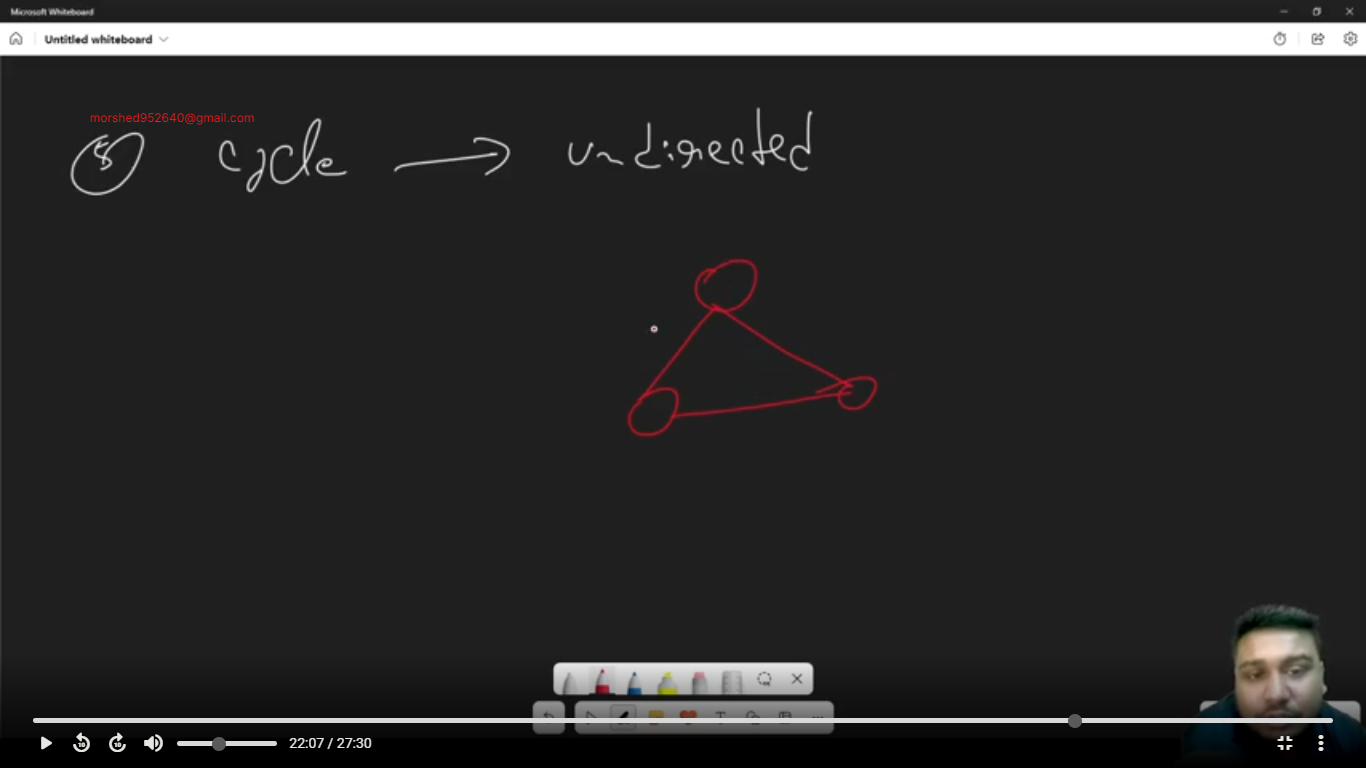 Microsoft Whiteboard
Untitled whiteboard
morshed952640@gmail.com
5 cycle → undirected
10 10 22:07 / 27:30